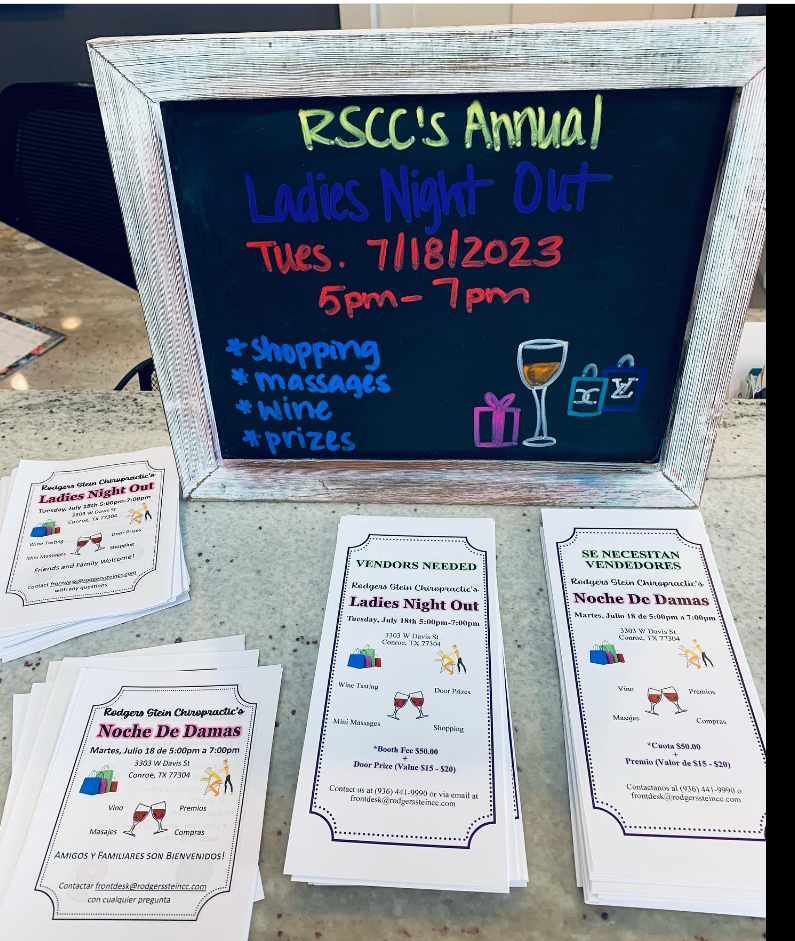 RSCC's Annual
Ladies Night Out
Tues. 7/18/2023
5pm-7pm
*shopping
*massages
*wine
*prizes
Rodgers Stein Chiropractic's
Ladies Night Out
Tuesday, July 18th 5:00pm-7:00pm
3303 W Davis St
Conroe, TX 77304
Wine Tasting
Door Prizes
Mini Massages
Shopping
Friends and Family Welcome!
Contact frontdesk@rodgerssteincc.com
with any questions
Rodgers Stein Chiropractic's
Noche De Damas
Martes, Julio 18 de 5:00pm a 7:00pm
3303 W Davis St
Conroe, TX 77304
Vino
Premios
Masajes
Compras
AMIGOS Y FAMILIARES SON BIENVENIDOS!
Contactar frontdesk@rodgerssteincc.com
con cualquier pregunta
VENDORS NEEDED
Rodgers Stein Chiropractic's
Ladies Night Out
Tuesday, July 18th 5:00pm-7:00pm
3303 W Davis St
Conroe, TX 77304
Wine Tasting
Door Prizes
Mini Massages
Shopping
*Booth Fee $50.00
+
Door Prize (Value $15 - $20)
Contact us at (936) 441-9990 or via email at
frontdesk@rodgerssteincc.com
SE NECESITAN
VENDEDORES
Rodgers Stein Chiropractic's
Noche De Damas
Martes, Julio 18 de 5:00pm a 7:00pm
3303 W Davis St
Conroe, TX 77304
Vino
Premios
Masajes
Compras
*Cuota $50.00
+
Premio (Valor de $15 - $20)
Contactanos al (936) 441-9990 o
frontdesk@rodgerssteincc.com